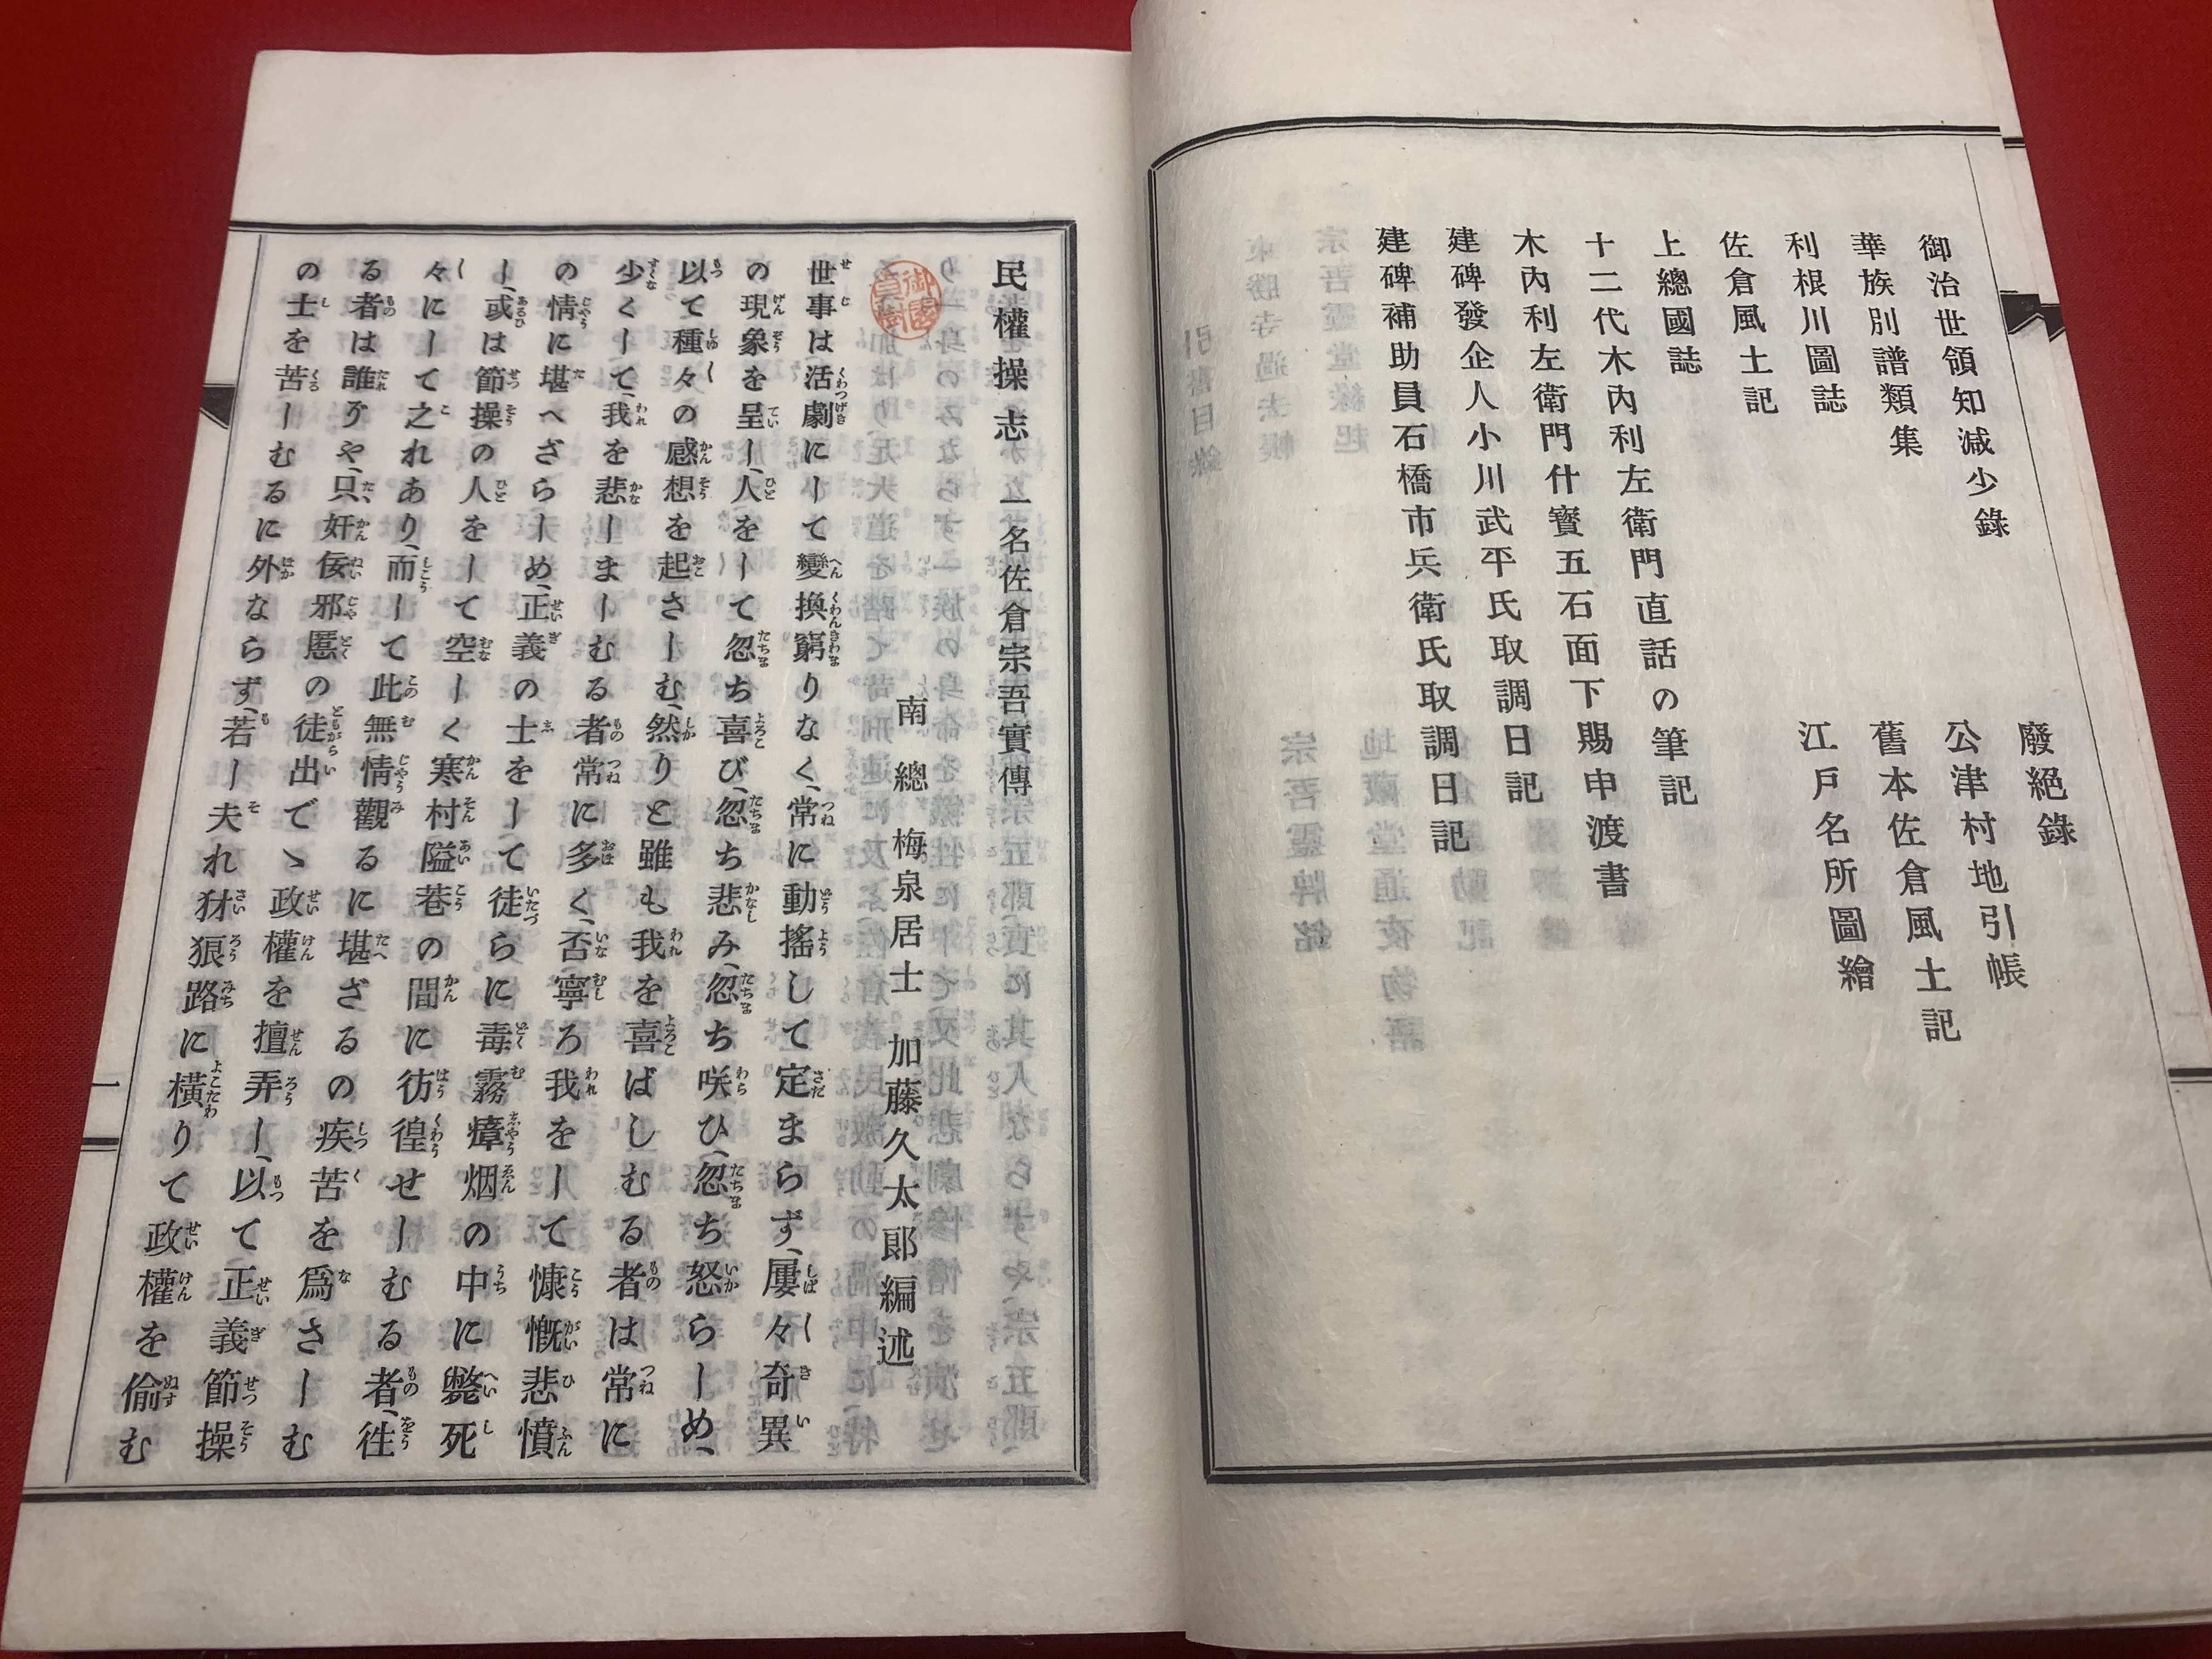 御治世領知減少錄
廢絕錄
華族別譜類集
公津村地引帳
利根川圖誌
舊本佐倉風土記
佐倉風土記
江戶名所圖繪
上總國誌
十二代木內利左衛門直話の筆記
木內利左衛門什寳五石面下賜申渡書
建碑發企人小川武平氏取調日記
建碑補助員石橋市兵衛氏取調日記
民權操志一名佐倉宗吾實傳
南總 梅泉居士 加藤久太郞編述
世事は活劇にして變換窮りなく、常に動搖して定まらず、屢々奇異
の現象を呈し、人をして忽ち喜び、忽ち悲み、忽ち咲ひ、忽ち怒らしめ、
以て種々の感想を起さしむ、然りと雖も我を喜ばしむる者は常に
少くして、我を悲しましむる者常に多く、否寧ろ我をして慷慨悲憤
の情に堪へざらしめ、正義の士をして徒らに毒霧瘴烟の中に斃死
し、或は節操の人をして空しく寒村隘巷の間に彷徨せしむる者、徃
々にして之れあり、而して此無情觀るに堪ざるの疾苦を爲さしむ
る者は誰ぞや、只奸佞邪慝の徒出でゝ政權を擅弄し、以て正義節操
の士を苦しむるに外ならず、若し夫れ豺狼路に橫りて政權を偷む